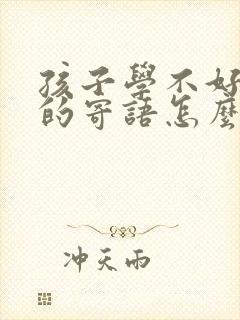 孩子學不好
的寄語怎麼
冲天雨